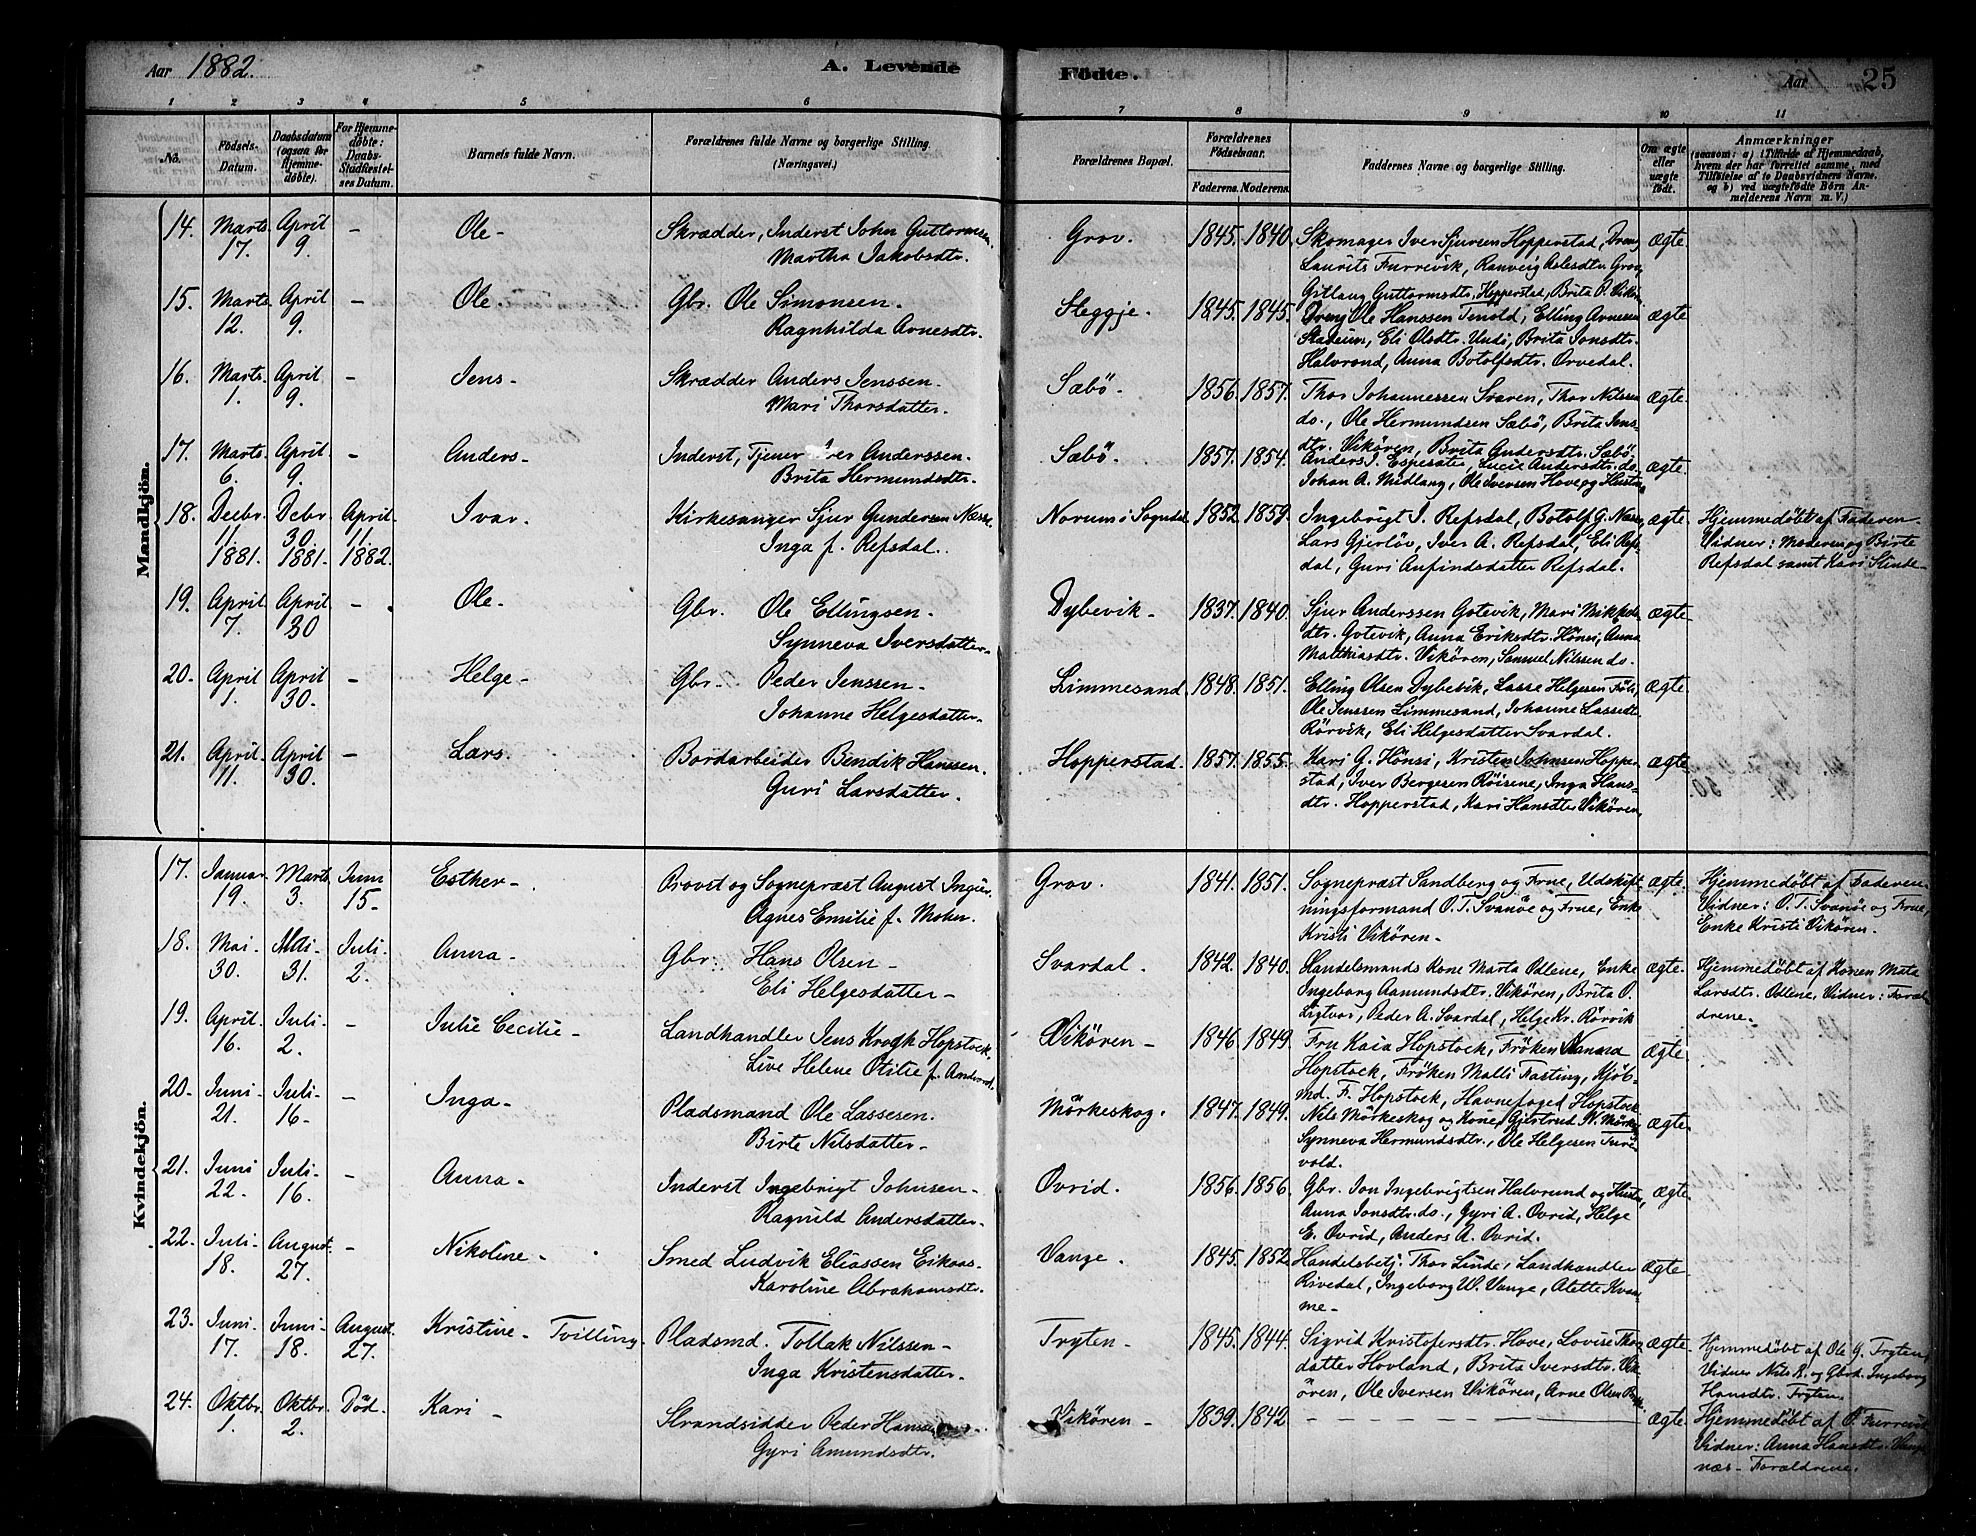 Aar 1882.
A. Levende Födte.
Aar 25
1 2 3 4 5 6 7 8 9 10 11
No.
Födsels-Datum.
Daabsdatum (ogsaa for Hjemme-döbte).
For Hjemme-döbte: Daabs-Stadfæstel-ses Datum.
Barnets fulde Navn.
Forældrenes fulde Navne og borgerlige Stilling. (Næringsvei.)
Forældrenes Bopæl.
Forældrenes Födselsaar.
Faderens. Moderens.
Faddernes Navne og borgerlige Stilling.
Om ægte eller uægte födt.
Anmærkninger (saasom: a) i Tilfælde af Hjemmedaab, hvem der har forrettet samme, med Tilföielse af to Daabsvidners Navne, og b) ved uægtefödte Börn An-melderens Navn m. V.)
Mandkjön.
14. Marts 17. April 9. - Ole- Skrædder, Inderst John Guttormsen. Martha Jakobsdtr. Grov. 1845. 1840. Skomager Iver Sjursen Hopperstad, Dreng
Laurits Furrevik, Ranveig Golesdtr. Grov
Gitlaug Guttormsdtr. Hopperstad, Brita P. Vikör. ægte.
15. Marts 12. April 9. - Ole. Gbr. Ole Simonsen. Ragnhilda Arnesdtr. Steggje. 1845. 1845. Dreng Ole Hanssen Tenold, Elling Arnesen
Stadeim, Eli Olsdtr. Undi, Brita Jonsdtr.
Halvrond, Anna Botolfsdtr. Orvedal. ægte
16. Marts 1. April 9. - Jens- Skrædder Anders Jenssen. Mari Thorsdatter. Sæbö. 1856. 1857. Thor Johannessen Svaren, Thor Nilssen
do., Ole Hermundsen Sæbö, Brita Jens-
dtr. Vikören, Brita Andersdtr. Sæbö. ægte.
17. Marts 6. April 9. - Anders- Inderst, Tjener Iver Anderssen. Brita Hermundsdtr. Sæbö. 1857. 1854. Anders I. Espesæter, Lucie Andersdtr. do.
Johan A. Midlang, Ole Iversen Hove og Hustru ægte.
18. Decbr. 11. 1881. Debr 30. 1881. April 1. 1882. Ivar. Kirkesanger Sjur Gundersen Næsse. Inga f. Refsdal. Norum i Sogndal 1852. 1859. Ingebrigt I. Refsdal, Botolf G. Næsse,
Lars Gjerlöv, Iver A. Refsdal, Eli Refs-
dal, Guri Anfindsdatter Refsdal. ægte. Hjemmedöbt af Faderen-
Vidner: Moderen og Birte
Refsdal samt Kari Stende-
19. April 7. April 30 - Ole. Gbr. Ole Ellingsen. Synneva Iversdatter. Dybevik- 1837. 1840. Sjur Anderssen Gotevik, Mari Mikkels-
dtr. Gotevik, Anna Eriksdtr. Hönsi, Anna
Matthiasdtr. Vikören, Samuel Nilssen do. ægte.
20. April 1. April 30. - Helge- Gbr. Peder Jenssen- Johanne Helgesdatter. Limmesand. 1848. 1851. Elling Olsen Dybevik, Lasse Helgesen Föli,
Ole Jenssen Limmesand, Johanne Lassedtr.
Rörvik, Eli Helgesdatter Svardal. ægte
21. April 11. April 30. - Lars. Bordarbeider Bendik Hanssen. Guri Larsdatter. Hopperstad. 1857. 1855. Kari G. Hönsi, Kristen Johnsen Hopper-
stad, Iver Bergesen Röisene, Inga Hans-
dtr. Hopperstad, Kari Hansdtr Vikören, ægte.
Kvindekjön.
17. Januar 19. Marts 3. Juni 15- Esther- Provst og Sognepræst August Ingier. Agnes Emilie f. Mohn. Grov. 1841. 1851. Sognepræst Sandberg og Frue, Udskift-
ningsformand O. T. Svanöe og Frue, Enke
Kristi Vikören- ægte. Hjemmedöbt af Faderen.
Vidner: O. T. Svanöe og Frue,
Enke Kristi Vikören.
18. Mai- 30. Mai- 31. Juli- 2. Anna- Gbr. Hans Olsen- Eli Helgesdatter- Svardal. 1842. 1840. Handelsmands Kone Marta Odlene, Enke
Ingeborg Aamundsdtr. Vikören, Brita P.
Ligtvor, Peder A. Svardal, Helge Kr. Rörvik ægte. Hjemmedöbt af Konen Mata
Larsdtr. Odlene, Vidner: Foræl-
drene.
19. April. 16. Juli- 2. - Julie Cecilie- Landhandler Jens Krogh Hopstock. Live Helene Otilie f. Vikören- 1846. 1849. Fru Kaia Hopstock, Fröken Nanna
Hopstock, Fröken Malli Fasting, Kjöb-
md. F. Hopstock, Havnefoged Hopstock ægte
20. Juni- 21. Juli- 16. - Inga- Pladsmand Ole Lassesen. Birte Nilsdatter- Mörkeskog. 1847. 1849. Nils Mörkeskog og Kone, Gjertrud N. Mörke
Synneva Hermundsdtr., Ole Helgesen Ture-
vold. ægte.
21. Juni 22. Juli- 16. - Anna- Inderst Ingebrigt Johnsen- Ragnild Andersdatter- Ovrid. 1856. 1856. Gbr. Jon Ingebrigtsen Halvrund og Hustru,
Anna Jonsdtr. do., Gyri A. Ovrid, Helge
E. Ovrid, Anders A. Ovrid. ægte.
22. Juli- 18. August. 27. - Nikoline- Smed Ludvik Eliassen Eikaas- Karoline Abrahamsdtr. Vange. 1845. 1852 Handelsbetj. Thor Linde, Landhandler
Rivedal, Ingeborg W. Vange, Alette Kvam-
me- ægte.
23. Juni- 17. Juni- 18. August. 27. Kristine- Tvilling Pladsmd. Tollak Nilssen- Inga Kristensdatter- Tryten- 1845. 1844. Sigrid Kristofersdtr. Hove, Lovise Thor-
datter Hovland, Brita Iversdtr. Vik-
ören, Ole Iversen Vikören, Arne Olsen ægte- Hjemmedöbt af Ole G. Tryten,
Vidner Nils R. og Gbrd. Ingeborg
Hansdtr. Tryten.
24. Oktbr. 1. Oktbr. 2. Död. Kari- Strandsidder Peder Hanssen Gyri Amundsdtr. Vikören- 1839. 1842. - - - - - - ægte. Hjemmedöbt af O.
Vidner: Anna Hansdtr. Vang-
næs- Forældrene.